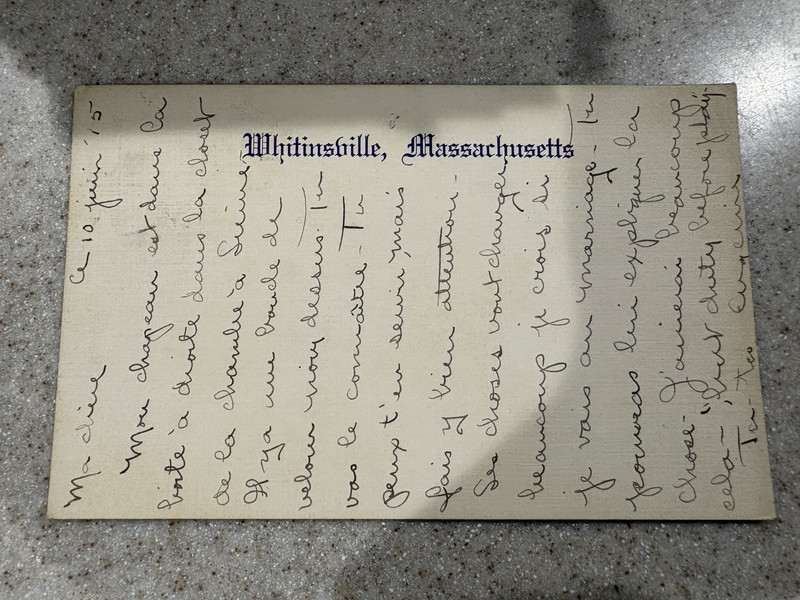 Whitinsville, Massachusetts
Ce 10 juin '15
Ma chère
Mon chapeau est dans la
boite à droite dans la closet
de la chambre à
Il y a une bande de
velour noir dessus. Tu
vas le connaitre - Tu
peux t'en servir, mais
fais y bien attention -
Les choses vont changer
beaucoup je crois si
je vais au marriage - Tu
pourras lui expliquer la
chose - J'aimerai beaucoup
cela -, "but duty before pldy.
Tu - Ta Eugénie